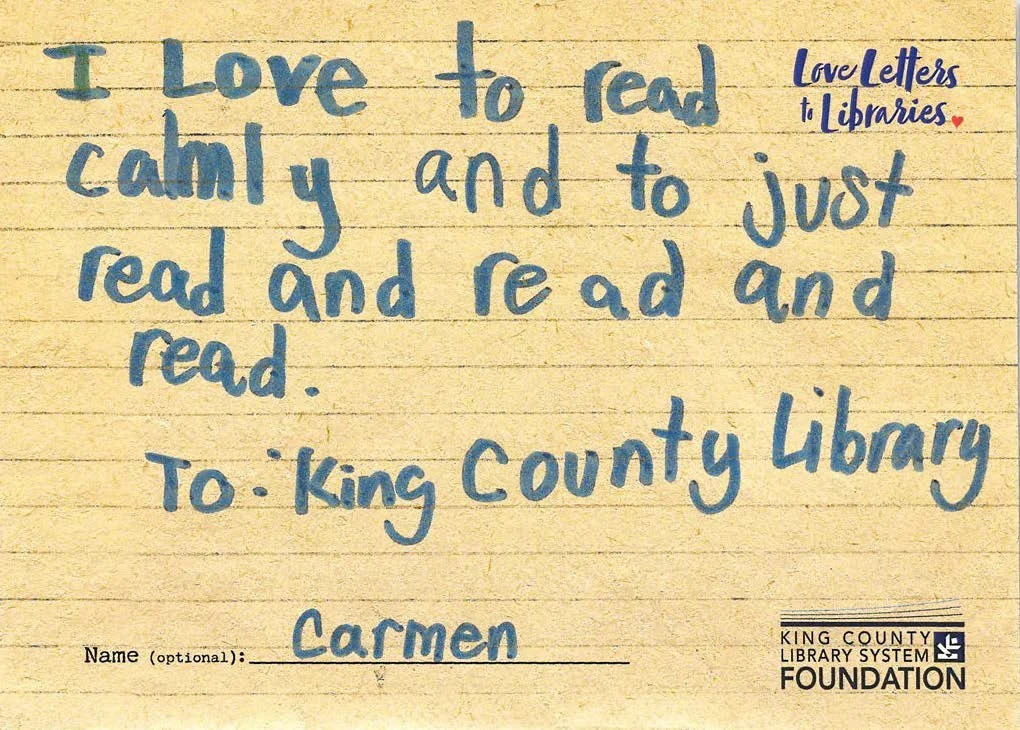 I Love to read
calmly and to just
read and read and
read.
To: King County Library
Love Letters
to Libraries.
Name (optional): Carmen
KING COUNTY
LIBRARY SYSTEM
FOUNDATION